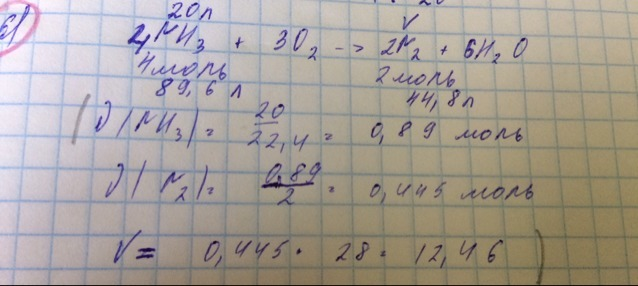 61
20л V
4NH₃ + 3O₂ → 2N₂ + 6H₂O
4моль 2моль
89,6 л 44,8л
(ν(NH₃) = 20/22,4 = 0,89 моль
ν(N₂) = 0,89/2 = 0,445 моль
V = 0,445 · 28 = 12,46 )